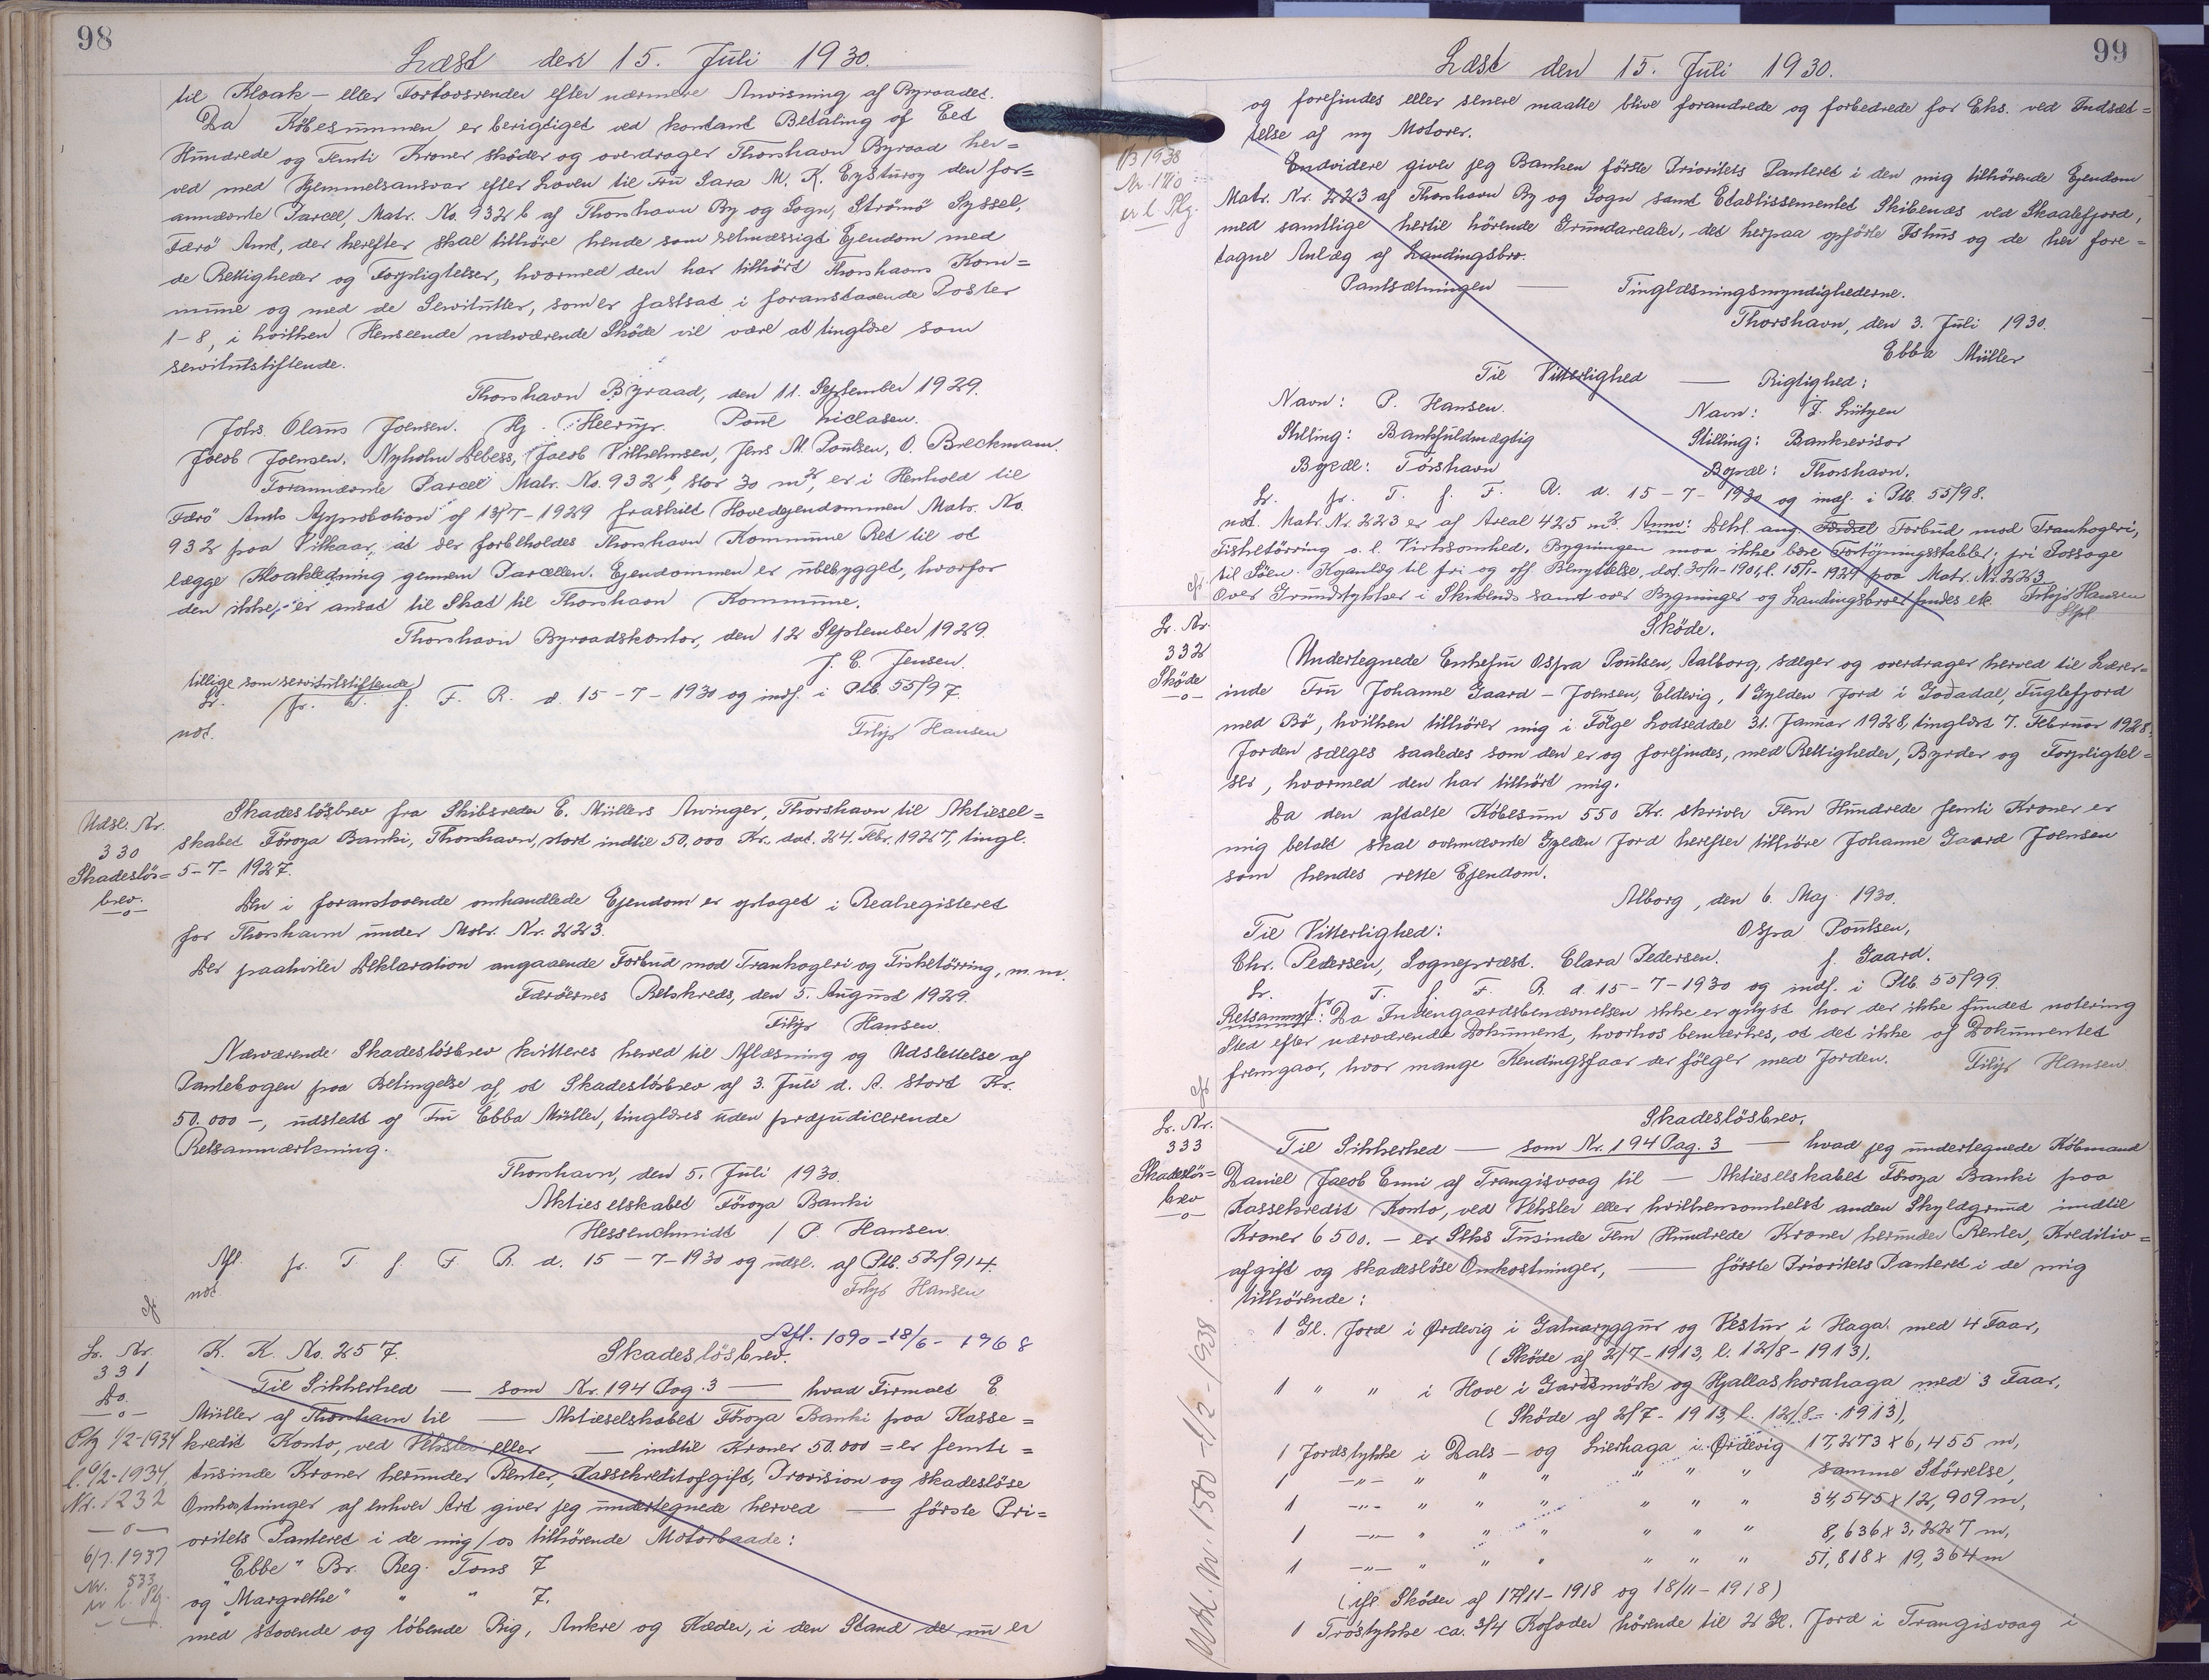 98
Læst den 15. Juli 1930.
til Kloak- eller Fortovsrender efter nærmere Anvisning af Byraadet.
Da Købesummen er berigtiget ved kontant Betaling af Eet
Hundrede og Femti Kroner skøder og overdrager Thorshavn Byraad her=
ved med Hjemmelsansvar efter Loven til Fru Sara M. K. Eysturoy den for=
annævnte Parcel, Matr. No. 932 b af Thorshavn By og Sogn, Strømø Syssel,
Færø Amt, der herefter skal tilhøre hende som retmæssigt Ejendom med
de Rettigheder og Forpligtelser, hvormed den har tilhørt Thorshavns Kom=
mune og med de Servitutter, som er fastsat i foranstaaende Poster
1-8, i hvilken Henseende nærværende Skøde vil være at tinglæse som
servitutstiftende.
Thorshavn Byraad, den 11. September 1929.
Johs. Olaus Joensen. Hj. Heerup. Poul Niclasen.
Jacob Joensen. Nyholm Debess, Jacob Vilhelmsen, Jens M. Poulsen, O. Breckmann.
Forannævnte Parcel Matr. No. 932 b, stor 30 m², er i Henhold til
Færø Amts Approbation af 13/7-1929 fraskilt Hovedejendommen Matr. No.
932 paa Vilkaar, at der forbeholdes Thorshavn Kommune Ret til at
lægge Kloakledning gennem Parcellen. Ejendommen er ubebygget, hvorfor
den ikke er ansat til Skat til Thorshavn Kommune.
Thorshavn Byraadskontor, den 12 September 1929.
J. E. Jensen.
tillige som servitutstiftende
Lr. fr. T. f. F. R. d. 15-7-1930 og indf. i Ptb. 55/97.
not. Filip Hansen
Udsl. Nr.
330
Skadesløs=
brev.
-o-
Skadesløsbrev fra Skibsreder E. Müllers Arvinger, Thorshavn til Aktiesel=
skabet Føroya Banki, Thorshavn, stort indtil 50.000 Kr., dat. 24. Febr. 1927, tingl.
5-7-1927.
Den i foranstaaende omhandlede Ejendom er optaget i Realregisteret
for Thorshavn under Matr. Nr. 223.
Der paahviler Deklaration angaaende Forbud mod Trankogeri og Fisketørring, m. m.
Færøernes Retskreds, den 5. August 1929.
Filip Hansen.
Nærværende Skadesløsbrev kvitteres herved til Aflæsning og Udslettelse af
Pantebogen paa Betingelse af, at Skadesløsbrev af 3. Juli d. A. stort Kr.
50.000 -, udstedt af Fru Ebba Müller, tinglæses uden præjudicerende
Retsanmærkning.
Thorshavn, den 5. Juli 1930.
Aktieselskabet Føroya Banki
Hessenschmidt / P. Hansen
Afl. fr. T. f. F. R. d. 15-7-1930 og udsl. af Ptb. 52/914.
not. Filip Hansen
cfr
Lr. Nr.
331
Do.
-o-
Ptg 1/2-1934
l. 9/2-1934,
Nr. 1232
-o-
6/7. 1937
Nr. 533
Afl. 1090-18/6-1968
K. K. No. 257. Skadesløsbrev.
Til Sikkerhed — som Nr. 194 Pag. 3 — hvad Firmaet E.
Müller af Thorshavn til — Aktieselskabet Føroya Banki paa Kasse=
kredit Konto, ved Veksler eller — indtil Kroner 50.000 = er femti =
tusinde Kroner herunder Renter, Kassekreditafgift, Provision og skadesløse
Omkostninger af enhver Art giver jeg undertegnede herved — første Pri=
oritets Panteret i de mig/os tilhørende Motorbaade:
"Ebbe" Br. Reg. Tons 7
og "Margrethe" " " 7.
med staaende og løbende Rig, Ankre og Kæder, i den Stand de nu er
99
Læst den 15. Juli 1930.
og forefindes eller senere maatte blive forandrede og forbedrede for Eks. ved Indsæt=
telse af ny Motorer.
1/3 1938
Endvidere giver jeg Banken første Prioritets Panteret i den mig tilhørende Ejendom
Matr. Nr. 223 af Thorshavn By og Sogn samt Etablissementet Skibenæs ved Skaalefjord,
med samtlige hertil hørende Grundarealer, det herpaa opførte Ishus og de her fore=
tagne Anlæg af Landingsbro.
Pantsætningen — Tinglæsningsmyndighederne.
Thorshavn, den 3. Juli 1930.
Ebba Müller
Til Vitterlighed — Rigtighed:
Navn: P. Hansen. Navn: J. Lützen
Stilling: Bankfuldmægtig Stilling: Bankrevisor
Bopæl: Tórshavn Bopæl: Thorshavn.
Lr. fr. T. f. F. R. d. 15-7-1930 og indf. i Ptb. 55/98.
not. Matr. Nr. 223 er af Areal 425 m². Anm: Dekl. ang. Forbud mod Trankogeri,
Fisketørring o. l. Virksomhed. Bygningen maa ikke bære Fortøjningsstabler; fri Passage
til Søen. Kajanlæg til fri og off. Benyttelse, dat. 30/11-1901, l. 15/1-1924 paa Matr. Nr. 223
Over Grundstykker i Skibenæs samt over Bygninger og Landingsbroer findes ek. Filip Hansen
cfr
Lr. Nr.
332
Skøde
-o-
Skøde.
Undertegnede Enkefru Ospa Poulsen, Aalborg, sælger og overdrager herved til Lærer=
inde Fru Johanne Gaard-Joensen, Eldevig, 1 Gylden Jord i Goðadal, Fuglefjord
med Bø, hvilken tilhører mig i Følge Lodseddel 31. Januar 1928, tinglæst 7. Februar 1928.
Jorden sælges saaledes som den er og forefindes, med Rettigheder, Byrder og Forpligtel=
ser, hvormed den har tilhørt mig.
Da den aftalte Købesum 550 Kr. skriver Fem Hundrede femti Kroner er
mig betalt skal ovennævnte Gylden Jord herefter tilhøre Johanne Gaard Joensen
som hendes rette Ejendom.
Alborg, den 6. Maj 1930.
Til Vitterlighed: Ospa Poulsen,
Chr. Pedersen, Sognepræst. Clara Pedersen. f. Gaard.
Lr. fr. T. f. F. R. d. 15-7-1930 og indf. i Ptb. 55/99.
Retsanmrk: Da Indengaardsbenævnelsen ikke er oplyst har der ikke fundet notering
Sted efter nærværende Dokument, hvorhos bemærkes, at det ikke af Dokumentet
fremgaar, hvor mange Kendingsfaar der følger med Jorden. Filip Hansen
cfr
Lr. Nr.
333
Skadesløs=
brev
-o-
Skadesløsbrev.
Til Sikkerhed — som Nr. 194 Pag. 3 — hvad jeg undertegnede Købmand
Daniel Jacob Enni af Trangisvaag til — Aktieselskabet Føroya Banki paa
Kassekredit Konto, ved Veksler eller hvilkensomhelst anden Skyldgrund indtil
Kroner 6500. - er Seks Tusinde Fem Hundrede Kroner herunder Renter, Kreditiv=
afgift og skadesløse Omkostninger, — første Prioritets Panteret i de mig
tilhørende:
1 Gl. Jord i Ørdevig i Gatnaryggur og Vestur i Haga. med 4 Faar,
(Skøde af 2/7-1913, l. 12/8-1913).
1 " " i Hove i Gardsmørk og Hjallaskorahaga med 3 Faar,
(Skøde af 2/7-1913, l. 12/8-1913),
1 Jordstykke i Dals- og Lierhaga i Ørdevig 17,273 x 6,455 m,
1 -"- " " " " " " samme Størrelse,
1 -"- " " " " " " 34,545 x 12,909 m,
1 -"- " " " " " " 8,636 x 3,227 m,
1 -"- " " " " " " 51,818 x 19,364 m
(ifl. Skøder af 17/11-1918 og 18/11-1918)
1 Trøstykke ca. 3/4 Kofoder hørende til 2 Gl. Jord i Trangisvaag i